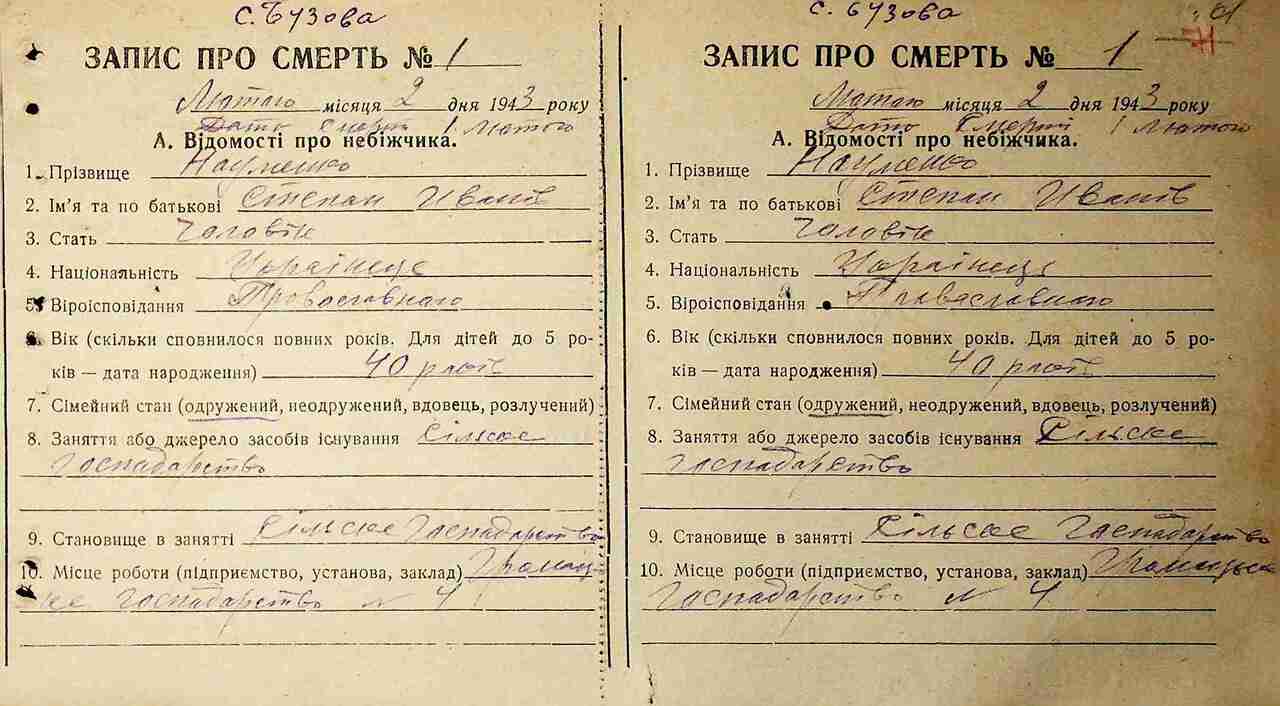 с. Бузова
ЗАПИС ПРО СМЕРТЬ № 1
Лютого місяця 2 дня 1943 року
Дата Смерті 1 Лютого
А. Відомості про небіжчика.
1. Прізвище Науменко
2. Ім'я та по батькові Степан Иванів
3. Стать Чоловік
4. Національність Українець
5. Віроісповідання Православного
6. Вік (скільки сповнилося повних років. Для дітей до 5 ро-
ків — дата народження) 40 років
7. Сімейний стан (одружений, неодружений, вдовець, розлучений)
8. Заняття або джерело засобів існування Сільске
Господарство
9. Становище в занятті Сільске Господарство
10. Місце роботи (підприємство, установа, заклад) Громад-
ске господарство № 4
с. Бузова
ЗАПИС ПРО СМЕРТЬ № 1
Лютого місяця 2 дня 1943 року
Дата Смерті 1 Лютого
А. Відомості про небіжчика.
1. Прізвище Науменко
2. Ім'я та по батькові Степан Иванів
3. Стать Чоловік
4. Національність Українець
5. Віроісповідання Православного
6. Вік (скільки сповнилося повних років. Для дітей до 5 ро-
ків — дата народження) 40 років
7. Сімейний стан (одружений, неодружений, вдовець, розлучений)
8. Заняття або джерело засобів існування Сільске
Господарство
9. Становище в занятті Сільске Господарство
10. Місце роботи (підприємство, установа, заклад)
Господарство № 4